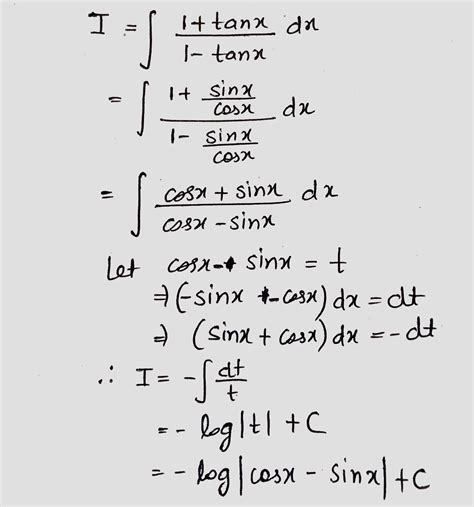 I = ∫ (1 + tanx)/(1 - tanx) dx
= ∫ (1 + sinx/cosx)/(1 - sinx/cosx) dx
= ∫ (cosx + sinx)/(cosx - sinx) dx
Let cosx - sinx = t
⇒ (-sinx - cosx) dx = dt
⇒ (sinx + cosx) dx = - dt
∴ I = - ∫ dt/t
= - log|t| + C
= - log|cosx - sinx| + C